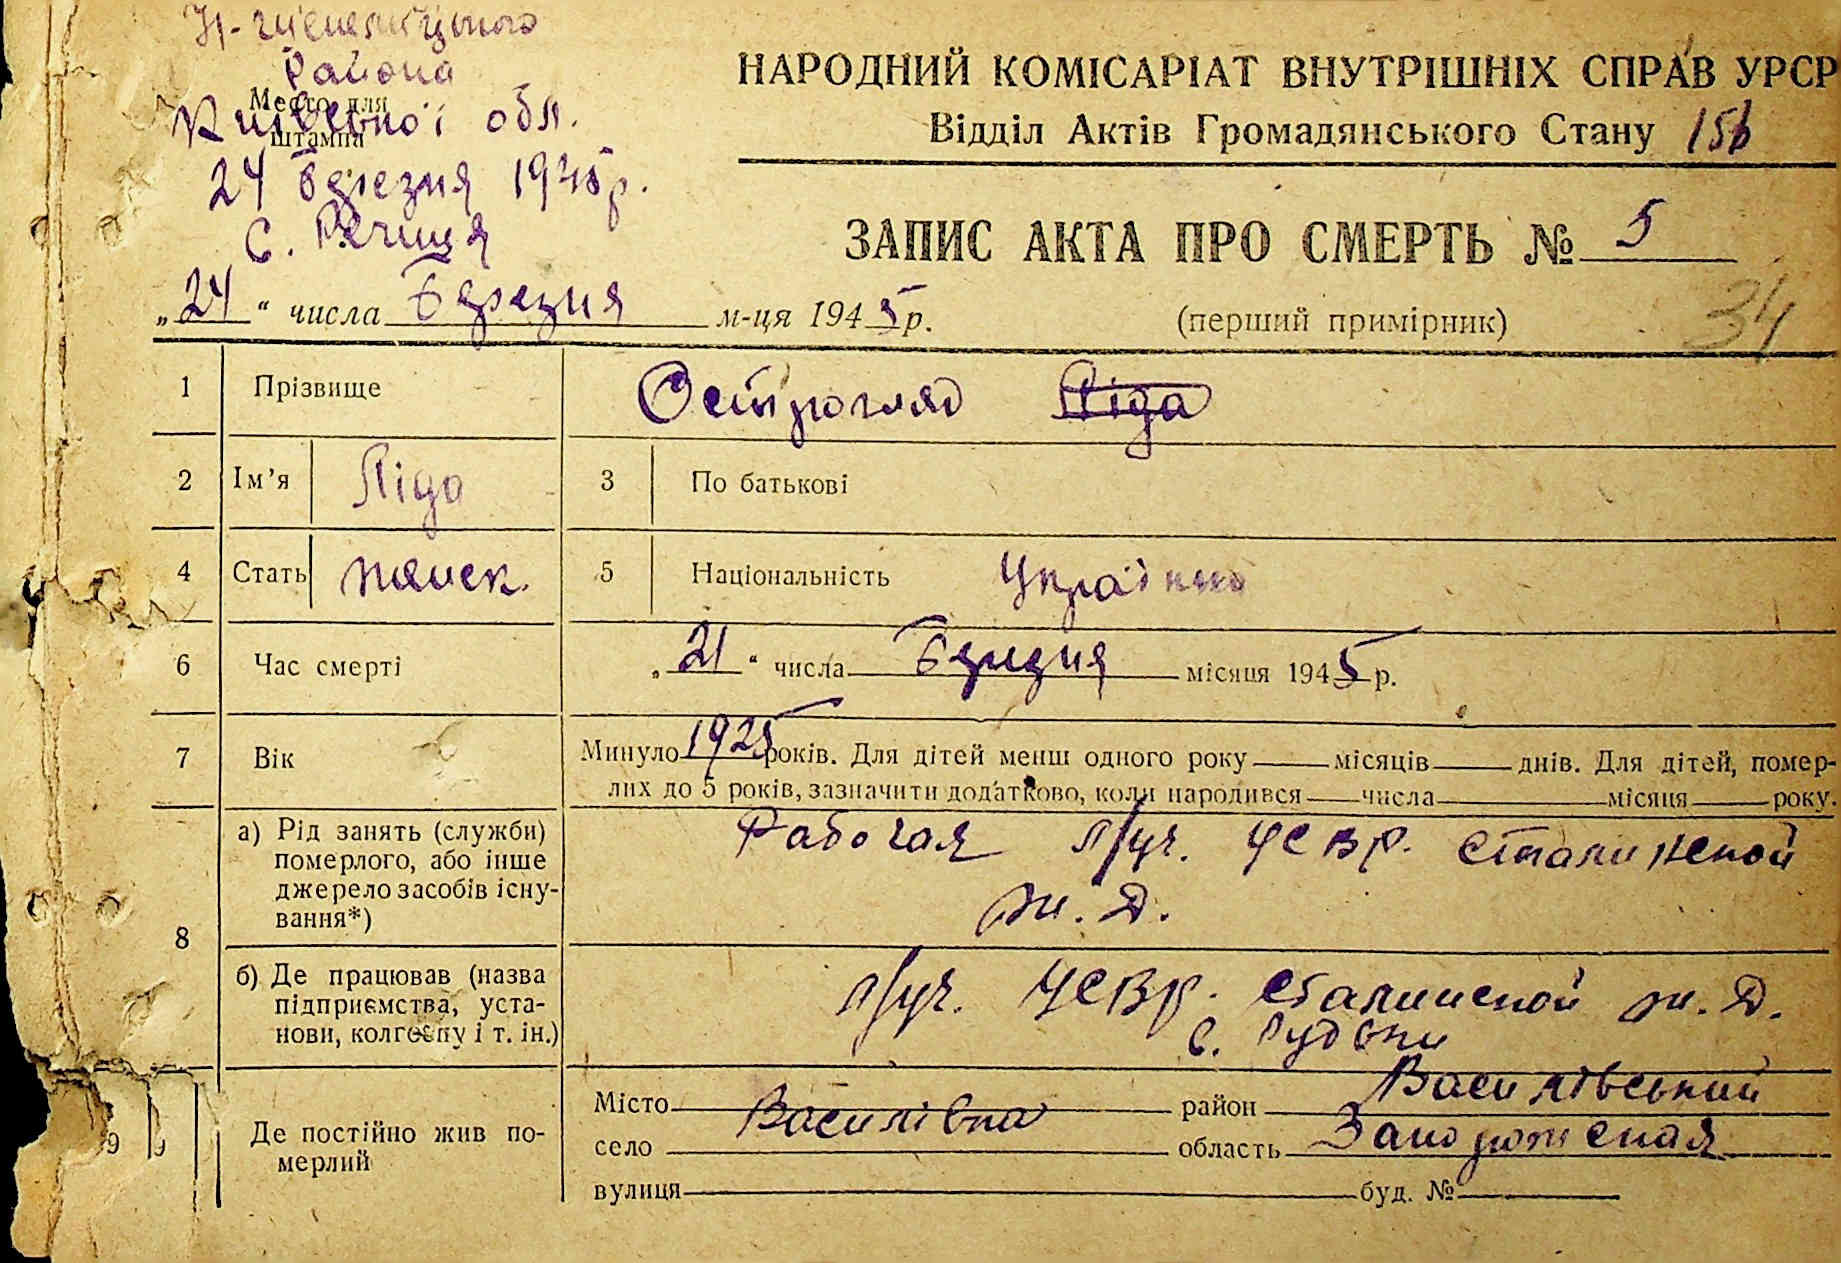 района
Место для
штампа
Київської обл.
24 березня 1945 р.
НАРОДНИЙ КОМІСАРІАТ ВНУТРІШНІХ СПРАВ УРСР
Відділ Актів Громадянського Стану
ЗАПИС АКТА ПРО СМЕРТЬ № 5
„24“ числа березня м-ця 1945 р.
(перший примірник)
34
1 Прізвище Остроглад Ліда
2 Ім'я Ліда 3 По батькові
4 Стать 5 Національність Українка
6 Час смерті „21“ числа березня місяця 1945 р.
7 Вік Минуло 1925 років. Для дітей менш одного року місяців днів. Для дітей, помер-
лих до 5 років, зазначити додатково, коли народився числа місяця року.
8 а) Рід занять (служби)
померлого, або інше
джерело засобів існу-
вання*)
Рабочая п/уч. УСВР. Сталинской
ж. д.
б) Де працював (назва
підприємства, уста-
нови, колгоспу і т. ін.)
п/уч. УСВР. Сталинской ж. д.
9 Де постійно жив по-
мерлий
Місто Василівка район Василівський
село область Запорожская
вулиця буд. №